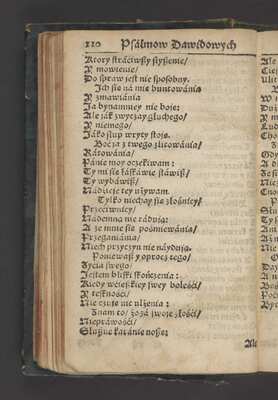 110 Psálmow Dawidowych
Ktory stráciwszy słyszenie/
Y mowienie/
Do spraw iest nie sposobny.
Ich sie na mie buntowánia
Y zmawiánia
Ja bynamniey nie boie:
Ale iák zwyczay głuchego/
Y niemego/
Jáko słup wryty stoie.
Bo ża z twego zlitowánia/
Rátowánia/
Pánie moy oczekiwam:
Ty mi sie łáskáwie stáwisz/
Ty wybáwisz/
Nádzieie tey używam.
Tylko niechay sie złośnicy/
Przeciwnicy/
Nádemną nie ráduią:
A ze mnie sie pośmiewánia/
Przegániánia/
Niech przyczyn nie náyduią.
Poniewasz y oprocz tego/
Życia swego/
Jestem bliski skończenia:
Kiedy wcieszkiey swey boleści/
Y teskności/
Nie czuie nic vlżenia:
Znam to/ żo zá moie złości/
Niepráwości/
Słuszne karánie nosze:
Ale